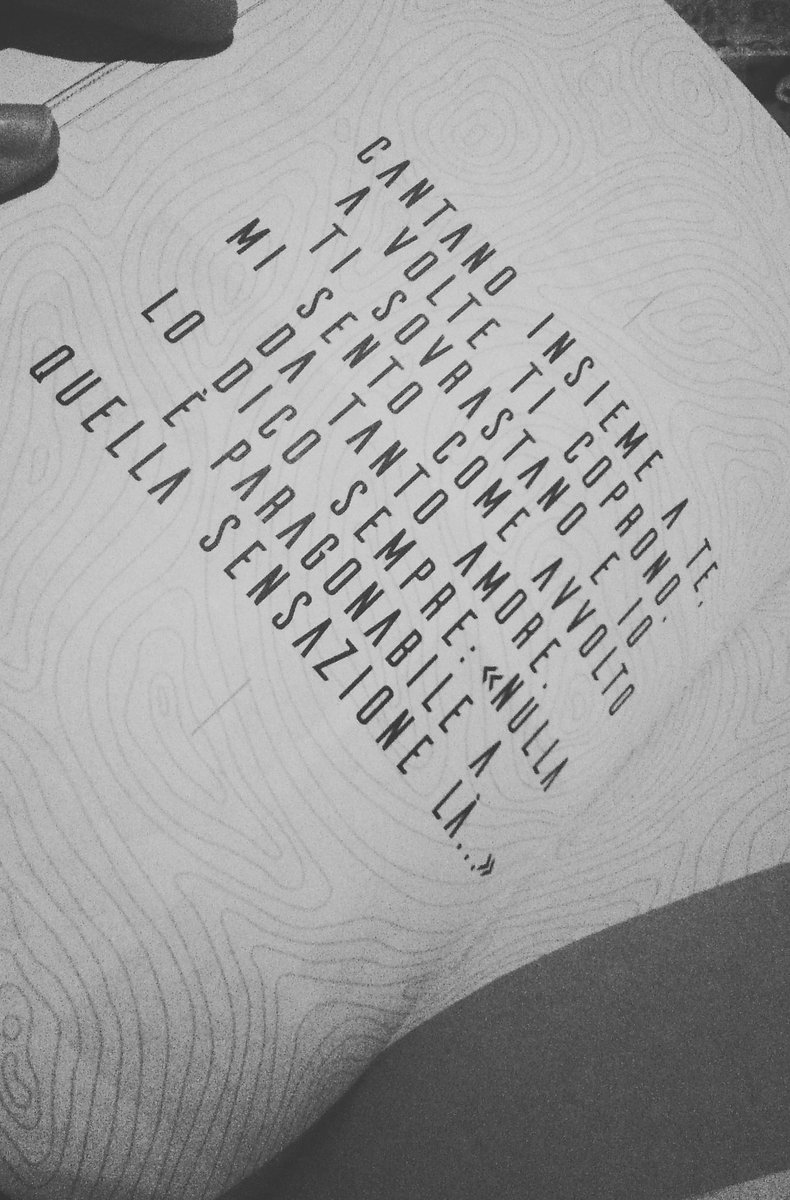 CANTANO INSIEME A TE.
A VOLTE TI COPRONO.
TI SOVRASTANO E IO
MI SENTO COME AVVOLTO
DA TANTO AMORE.
LO DICO SEMPRE: «NULLA
È PARAGONABILE A
QUELLA SENSAZIONE LÀ...»